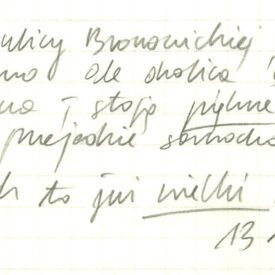 ulicy Bronowickiej
ale okolica
stoją piękne
przejedzie samochod
to już wielki
13